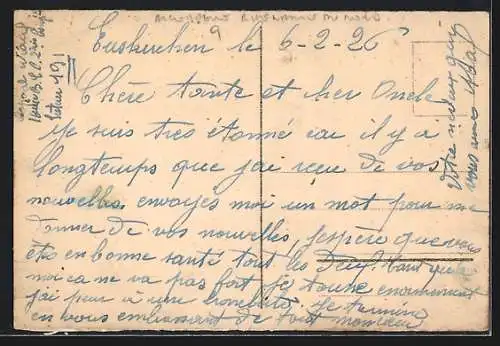 Euskirchen le 6-2-26
Chère tante et cher Oncle
Je suis très étonné car il y a
longtemps que j'ai reçue de vos
nouvelles, envoyes moi un mot pour me
donner de vos nouvelles, j'espère que vous
ete en bonne santé tout les Deux. Tant qu'a
moi ca ne va pas fort je tousse enormement
j'ai peur à une Je termine
en vous embrassant de tout mon cœur
Votre neveux qui
vous aime